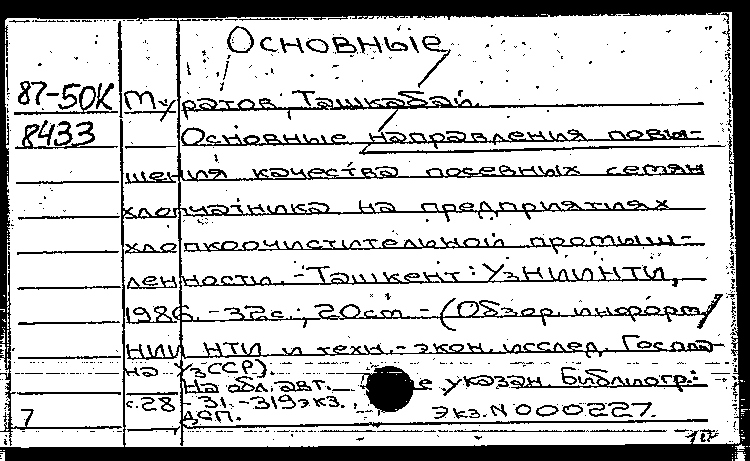 Основные
87-50К Муратов, Ташкабай.
8433 Основные направления повы-
шения качества посевных семян
хлопчатника на предприятиях
хлопкоочистительной промыш-
ленности. - Ташкент: УзНИИНТИ,
1986. - 32с.; 20см - (Обзор. информ/
НИИ НТИ и техн.-экон. исслед. Госпла-
на УзССР).
На обл. авт. е указан. Библиогр.:
с. 28-31. - 319 экз.
7 ДЕП. Экз. N 000227.